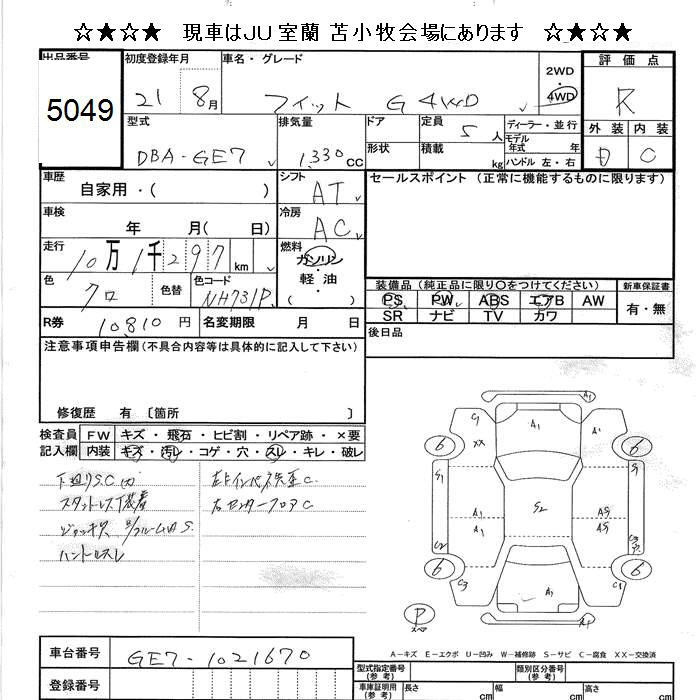 ☆★☆★ 現車はJU室蘭 苫小牧会場にあります ☆★☆★
出品番号 初度登録年月 車名・グレード 評価点
5049 21 8月 フィット G 4WD 2WD ・ 4WD R
型式 排気量 ドア 定員 ディーラー・並行 外装 内装
DBA-GE7 1,330cc 形状 積載 5人 kg モデル年式 年 ハンドル 左・右 D C
車歴 自家用・( ) シフト AT セールスポイント (正常に機能するものに限ります)
車検 年 月( 日) 冷房 AC
走行 10万1千297 km 燃料 ガソリン 軽油 ( )
色 クロ 色替 色コード NH731P
装備品 (純正品に限り○をつけてください) 新車保証書
PS PW ABS エアB AW 有・無
SR ナビ TV カワ
R券 10,810円 名変期限 月 日
後日品
注意事項申告欄 (不具合内容等は具体的に記入して下さい)
修復歴 有 〔箇所 〕
検査員 FW キズ・飛石・ヒビ割・リペア跡・×要
記入欄 内装 キズ・汚レ・コゲ・穴・スレ・キレ・破レ
下廻りS.C
スタットレス
ハンドルスレ
右センターフロアC
C1 A1 A1
XX
6 6
S1 S1
A1 S2 AS
A1 AS
C2
6 6
C3 A1 C1
P スペア
A-キズ E-エクボ U-凹み W-補修跡 S-サビ C-腐食 XX-交換済
車台番号 GE7-1021670
登録番号
型式指定番号(参考) 類別区分番号(参考)
車庫証明用(参考) 長さ cm 幅 cm 高さ cm